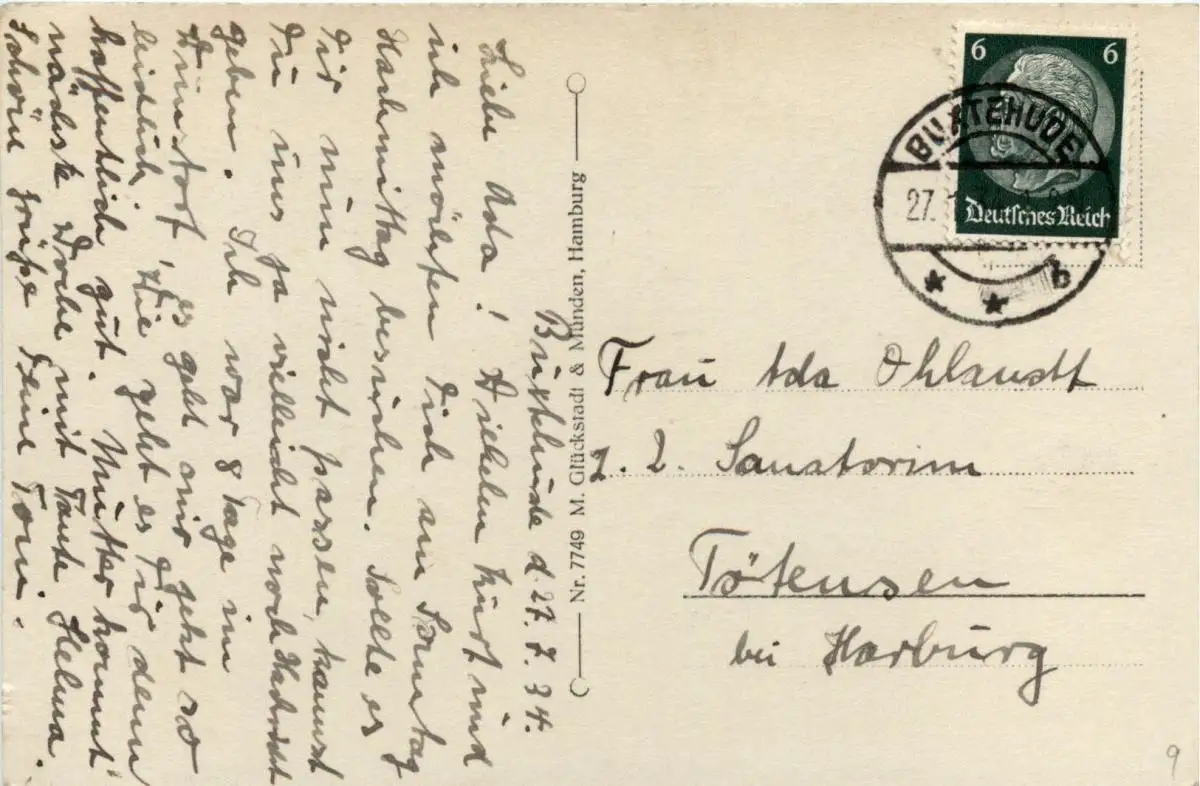 Buxtehude d. 27. 7. 34.
Liebe Ada! Kurt und
ich möchten Dich am Sonntag
Nachmittag besuchen. Sollte es
Dir nun nicht passen, kannst
Du uns ja vielleicht noch Nachricht
geben. Ich war 8 Tage im
es geht mir jetzt so
leidlich, Wie geht es Dir denn
hoffentlich gut. Mutter kommt
nächste Woche mit Tante Helma.
Schöne Grüße Deine Toni.
Nr. 7749 M. Glückstadt & Münden, Hamburg
6 6
Deutsches Reich
BUXTEHUDE
27.
b
Frau Ada Ohlandt
z. Z. Sanatorium
Tötensen
bei Harburg
9